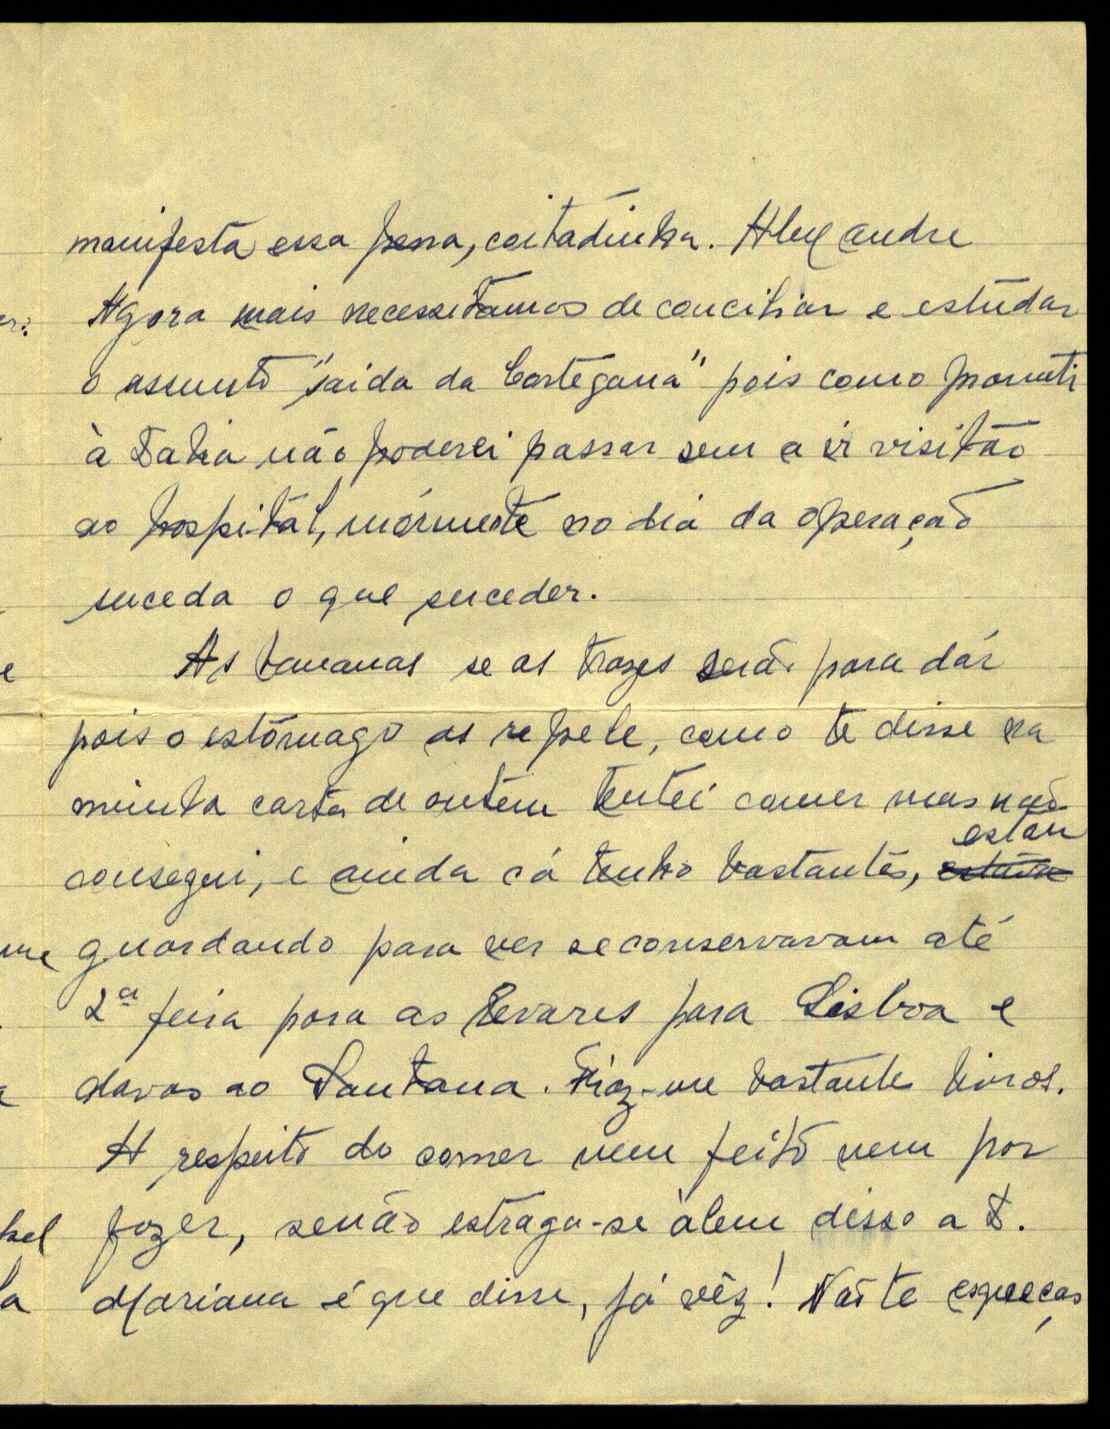 manifesta essa pena, coitadinha. Alexandre
Agora mais necessitamos de conciliar e estudar
o assunto "saida da Cortegana" pois como promети
à Dalia não poderei passar sem a ir visitão
ao hospital, mórmente no dia da operação
suceda o que suceder.
As bananas se as trazes será para dár
pois o estômago as repele, como te disse na
minha carta de ontem tentei comer mas não
consegui, e ainda cá tenho bastantes, estou
guardando para ver se conservavam até
2ª feira para as levares para Lisboa e
davas ao Santana. Traz-me bastante livros.
A respeito do comer nem feito nem por
fazer, senão estraga-se àlem disso a D.
Mariana é que disse, já vêz! Não te esqueças
me